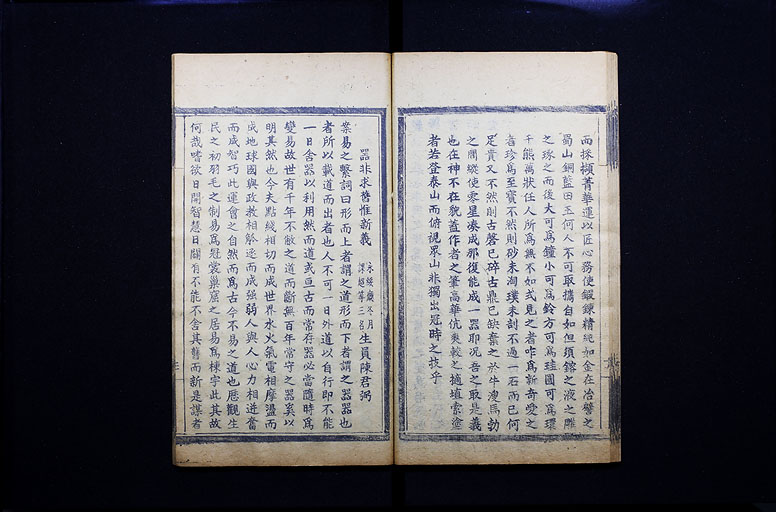 而採擷菁華運以匠心務使鍛鍊精純如金在冶譬之
蜀山銅藍田玉何人不可取攜自如但須鎔之液之雕
之琢之而後大可爲鐘小可爲鈴方可爲珪圓可爲環
千態萬狀任人所爲無不如式見之者咋爲新奇愛之
者珍爲至寶不然則砂未淘璞未剖不過一石而已何
足貴又不然則古磬已碎古鼎已缺棄之於牛溲馬勃
之間縱使零星湊成那復能成一器耶况吾之取是義
也在神不在貌蓋作者之筆高華伉爽較之擿埴索塗
者若登泰山而俯視眾山非獨出冠時之技乎
器非求舊惟新義 永綏廳冬月課超等三名 生員陳君弼
業易之繫詞曰形而上者謂之道形而下者謂之器器也
者所以載道而出者也人不可一日外道以自行即不能
一日舍器以利用然而道或亘古而常存器必當隨時爲
變易故世有千年不敝之道而斷無百年常守之器奚以
明其然也今夫點綫相切而成世界水火氣電相摩盪而
成地球國與政教相觝逐而成強弱人與人心力相迸奮
而成智巧此運會之自然而爲古今不易之道也歷觀生
民之初羽毛之制易爲冠裳巢窟之居易爲棟宇此其故
何哉嗜欲日開智慧日闢有不能不舍其舊而新是謀者